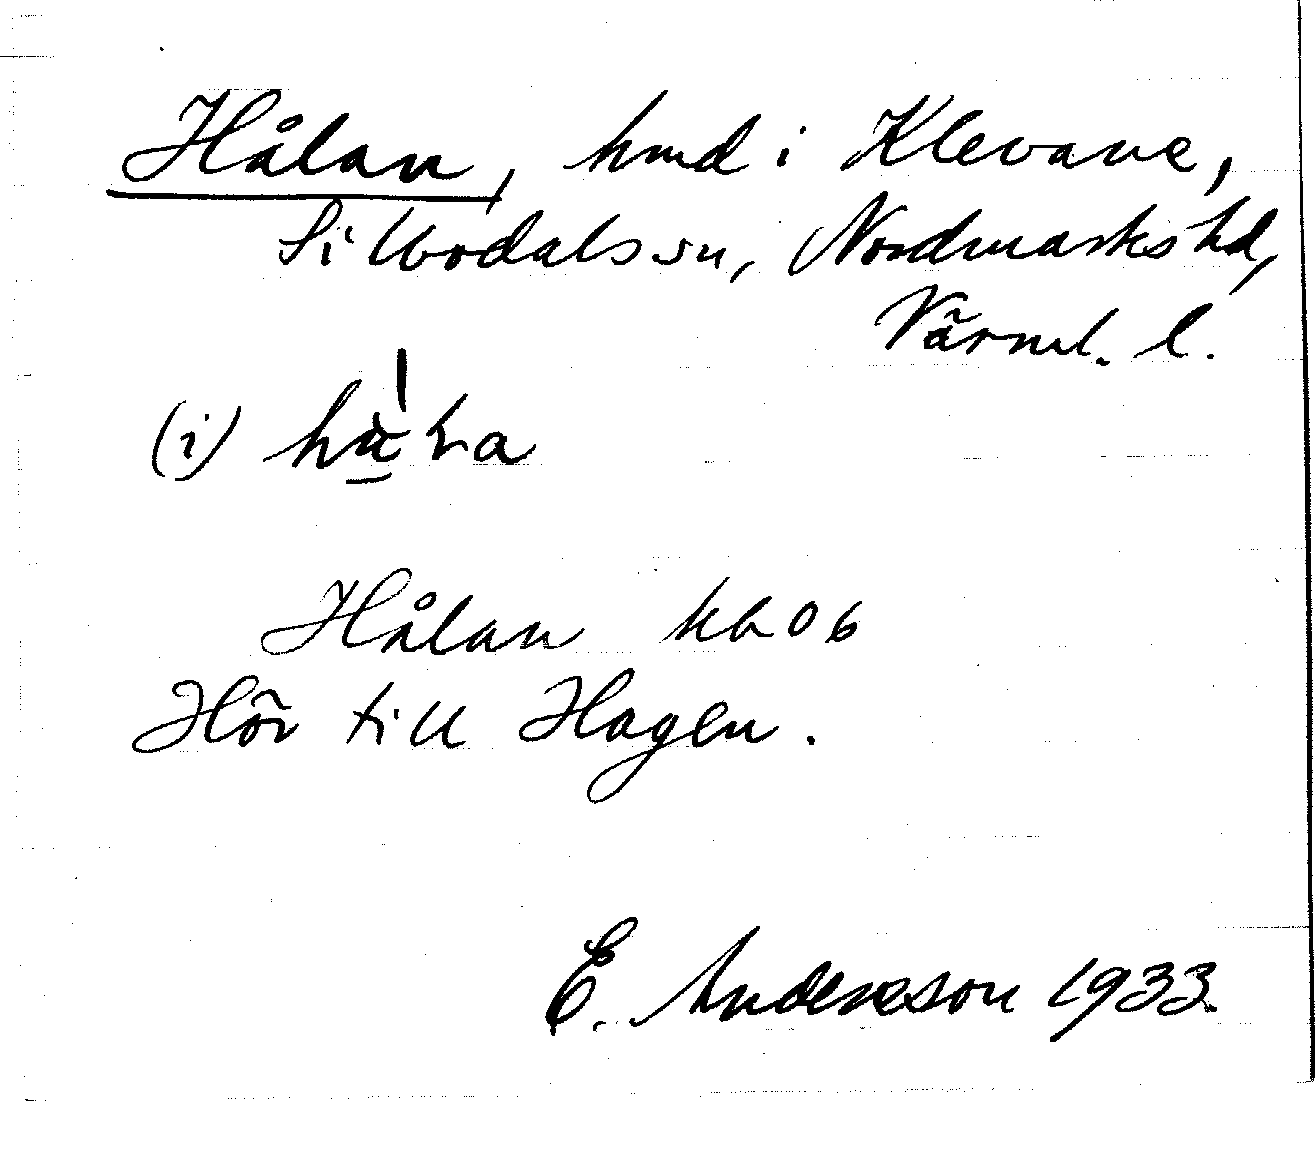 Hålan, hmd i Klevane,
Silbodals sn, Nordmarks hd,
Värml. l.
(i)
Hålan kb 06
Hör till Hagen.
E. Andersson 1933.